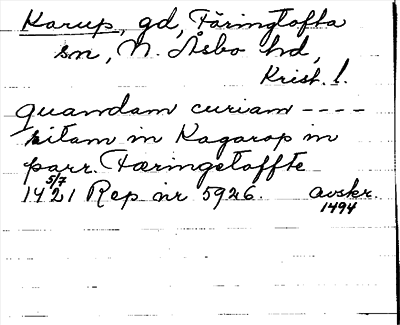 Karup, gd, Färingtofta
sn, N. Åsbo hd,
Krist. l.
quamdam curiam ----
sitam in Kagarop in
parr. Færingetoffte
5/7
1421 Rep nr 5926. avskr.
1494